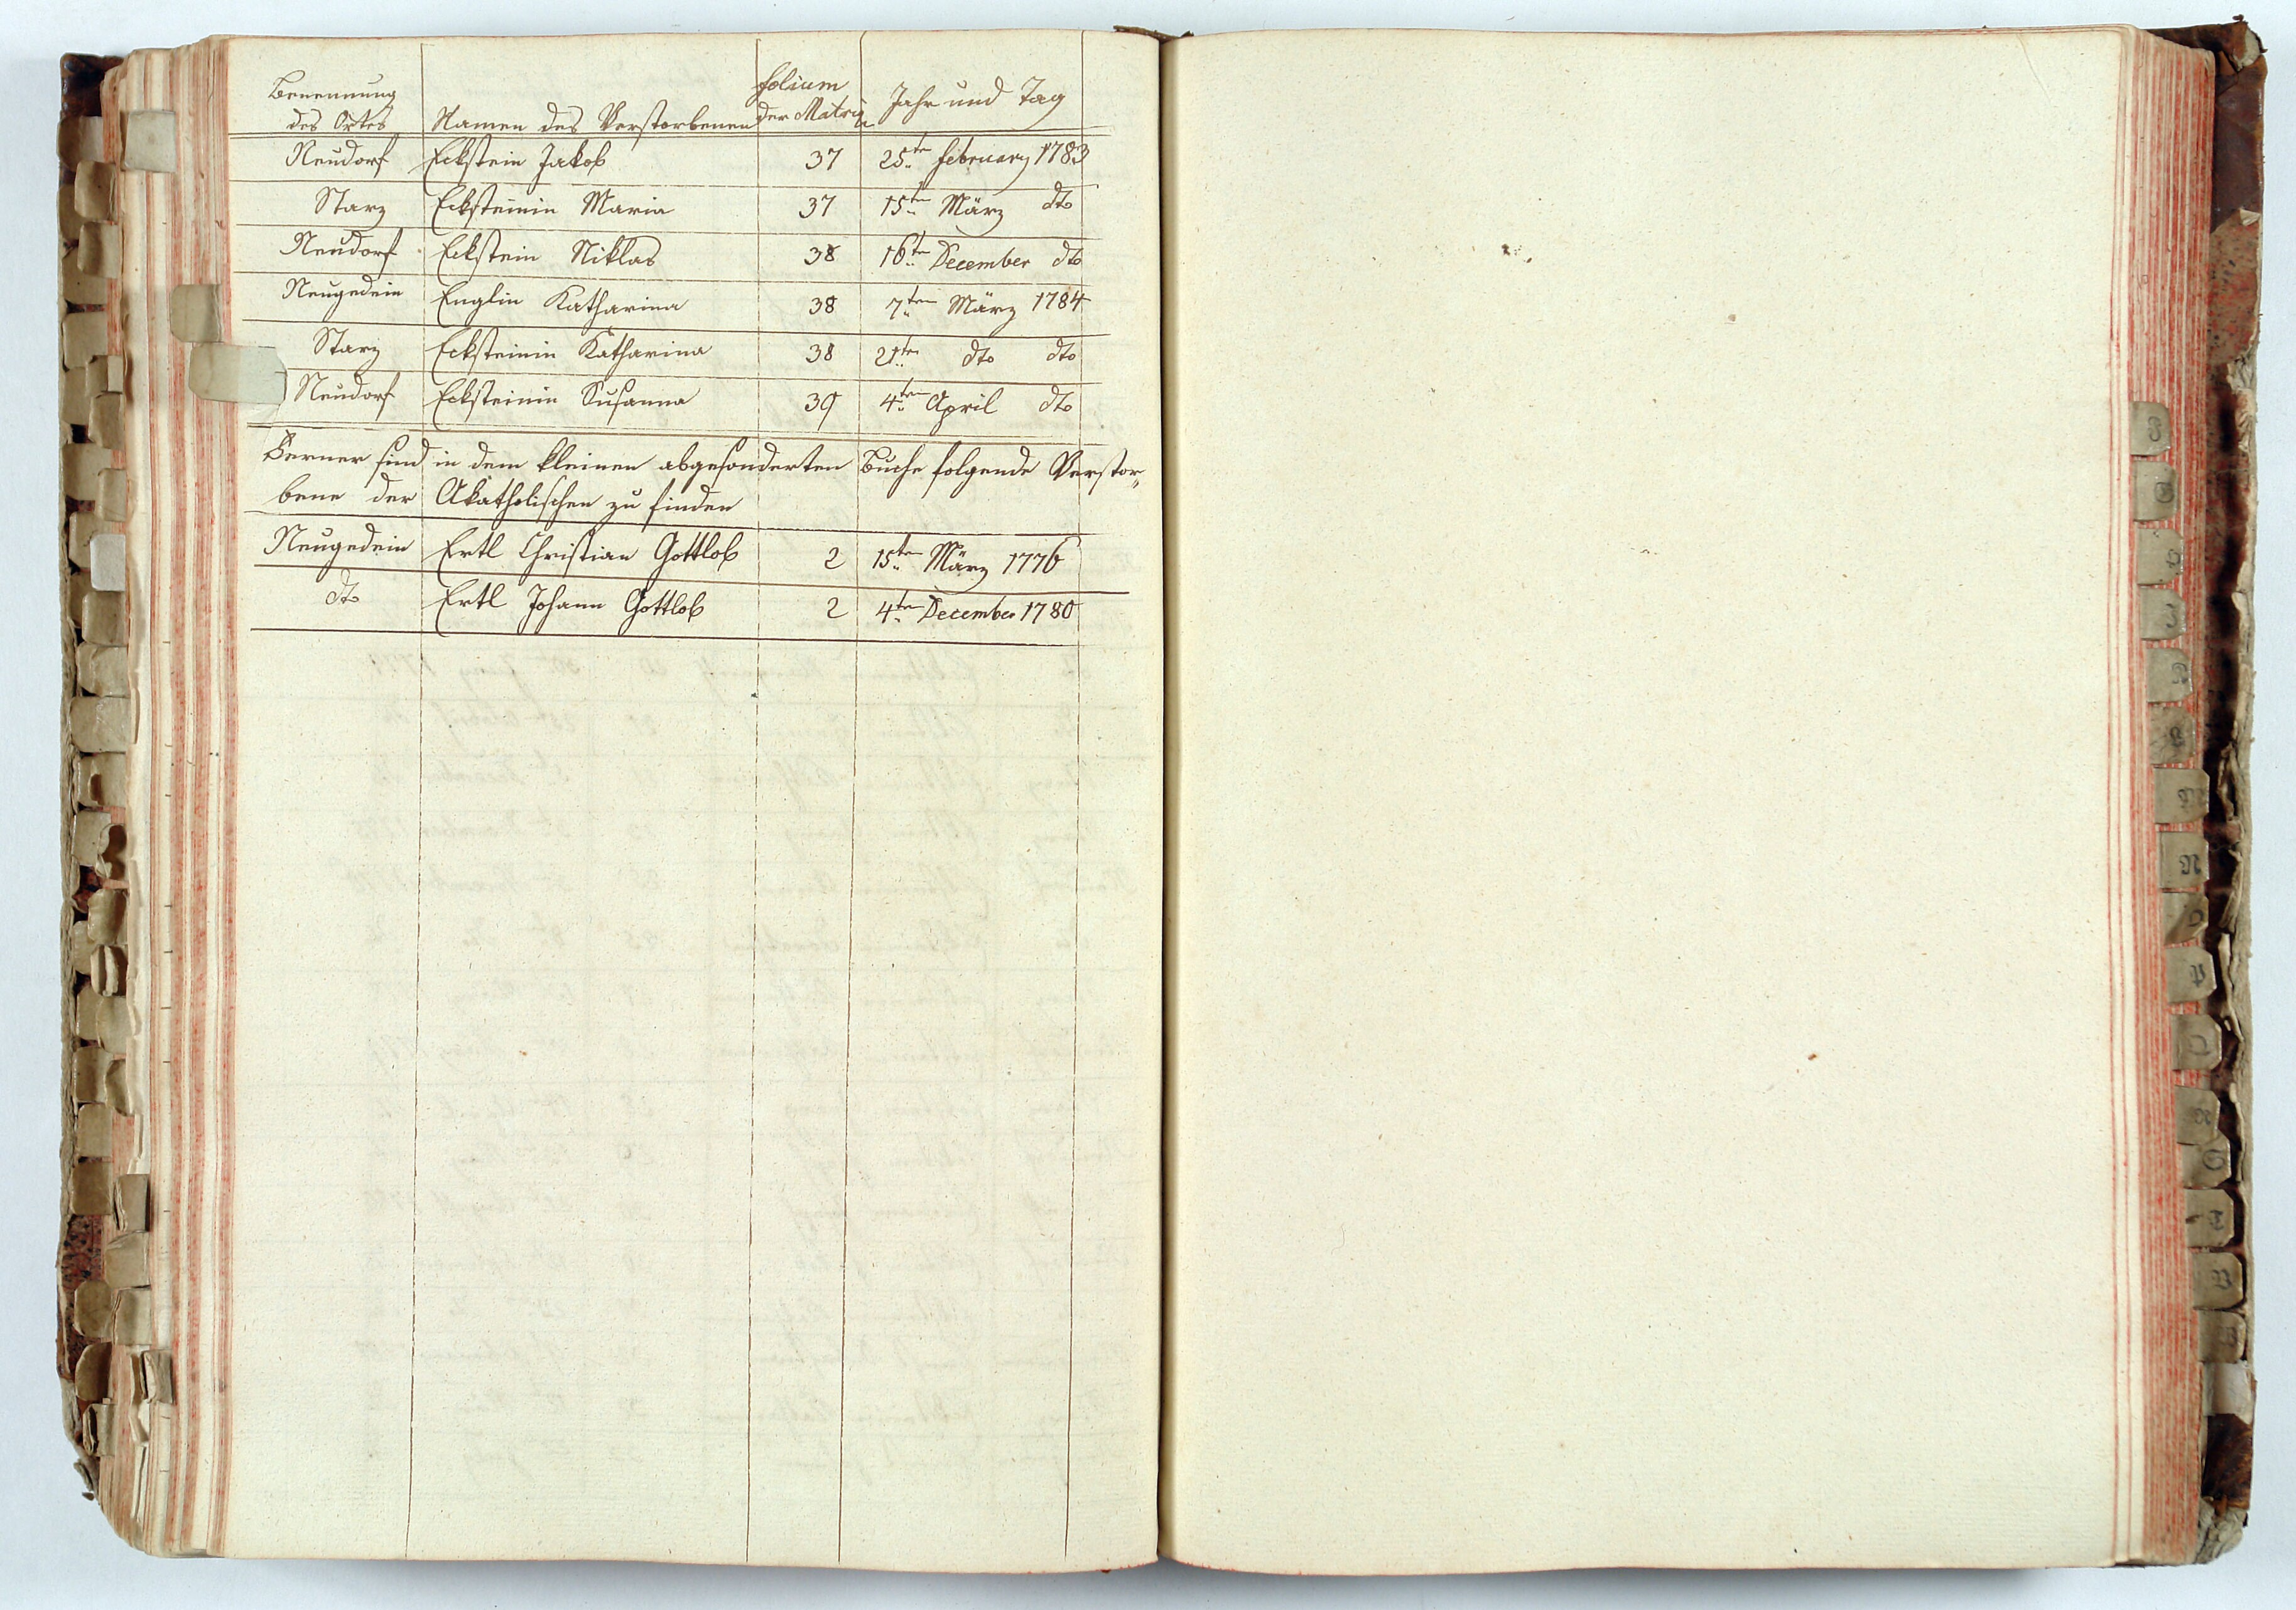 Benennung des Ortes Namen des Verstorbenen folium der Matrik Jahr und Tag
Neudorf Eckstein Jakob 37 25ten february 1783
Starz Ecksteinin Maria 37 15ten März dto
Neudorf Eckstein Niklas 38 16ten December dto
Neugedein Englin Katharina 38 7ten März 1784
Starz Ecksteinin Katharina 38 21ten dto dto
Neudorf Ecksteinin Susanna 39 4ten April dto
Ferner sind in dem kleinen abgesonderten Buche folgende Verstor„
bene der Akatholischen zu finden
Neugedein Ertl Christian Gottlob 2 15ten März 1776
dto Ertl Johann Gottlob 2 4ten December 1780